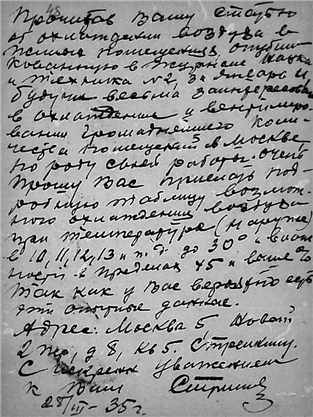 Прочитав Вашу статью
об охлаждении воздуха в
жилых помещениях, опубли-
кованную в журнале Наука
и Техника №2, за январь и
будучи весьма заинтересован
в охлаждение и вентилиро-
вании громаднейшего коли-
чества помещений в Москве,
по роду своей работы. очень
Прошу Вас прислать под-
робную таблицу возмож-
ного охлаждения воздуха
при температуре (наружной)
в 10, 11, 12, 13 и т.д. до 30° и влаж
ности в пределах 45 и выше %
Так как у Вас вероятно есть
эти опытные данные.
Адрес: Москва 5 Новая
2 пер, д 8, кв 5. Стрешину.
С искренн уважением
к Вам
28/III-35г.